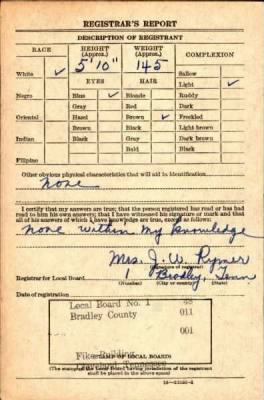 REGISTRAR'S REPORT
DESCRIPTION OF REGISTRANT
RACE HEIGHT (Approx.) WEIGHT (Approx.) COMPLEXION
5'10" 145
White ✓ EYES HAIR Sallow
Light ✓
Negro Blue ✓ Blonde Ruddy
Gray Red Dark
Oriental Hazel Brown ✓ Freckled
Brown Black Light brown
Indian Black Gray Dark brown
Bald Black
Filipino
Other obvious physical characteristics that will aid in identification
None
I certify that my answers are true; that the person registered has read or has had
read to him his own answers; that I have witnessed his signature or mark and that
all of his answers of which I have knowledge are true, except as follows:
None within my knowledge
Mrs. J. W. Rymer
(Signature of registrar)
Registrar for Local Board 1 Bradley, Tenn
(Number) (City or county) (State)
Date of registration
Local Board No. 1 48
Bradley County 011
001
Cleveland Tennessee
(STAMP OF LOCAL BOARD)
(The stamp of the Local Board having jurisdiction of the registrant
shall be placed in the above space)